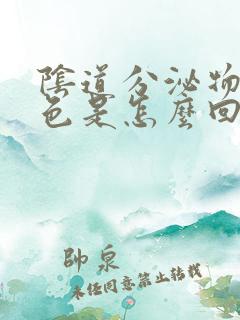 陰道分泌物
色是怎麼回
帥泉
未经同意禁止转载